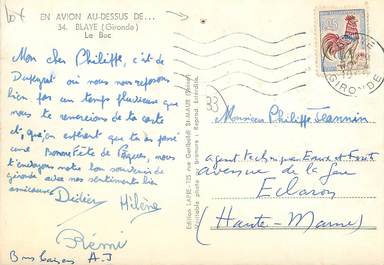 EN AVION AU-DESSUS DE...
34. BLAYE (Gironde)
Le Bac
Mon cher Philippe, c'est de
où nous nous reposons
bien par un temps pluvieux que
nous te remercions de ta carte
et qu'en espérant que tu as passé
une Bonne Fête de Pâques, nous
t'envoyons notre bon souvenir de
gironde avec nos sentiments les
amicaux
Didier Hélène
Rémi
Bons baisers A.J
Edition LAPIE - ST-MAUR (Seine)
33
GIRONDE
Monsieur Philippe Jeannin
agent technique Eaux et Forêt
avenue de la Gare
Eclaron
(Haute-Marne)